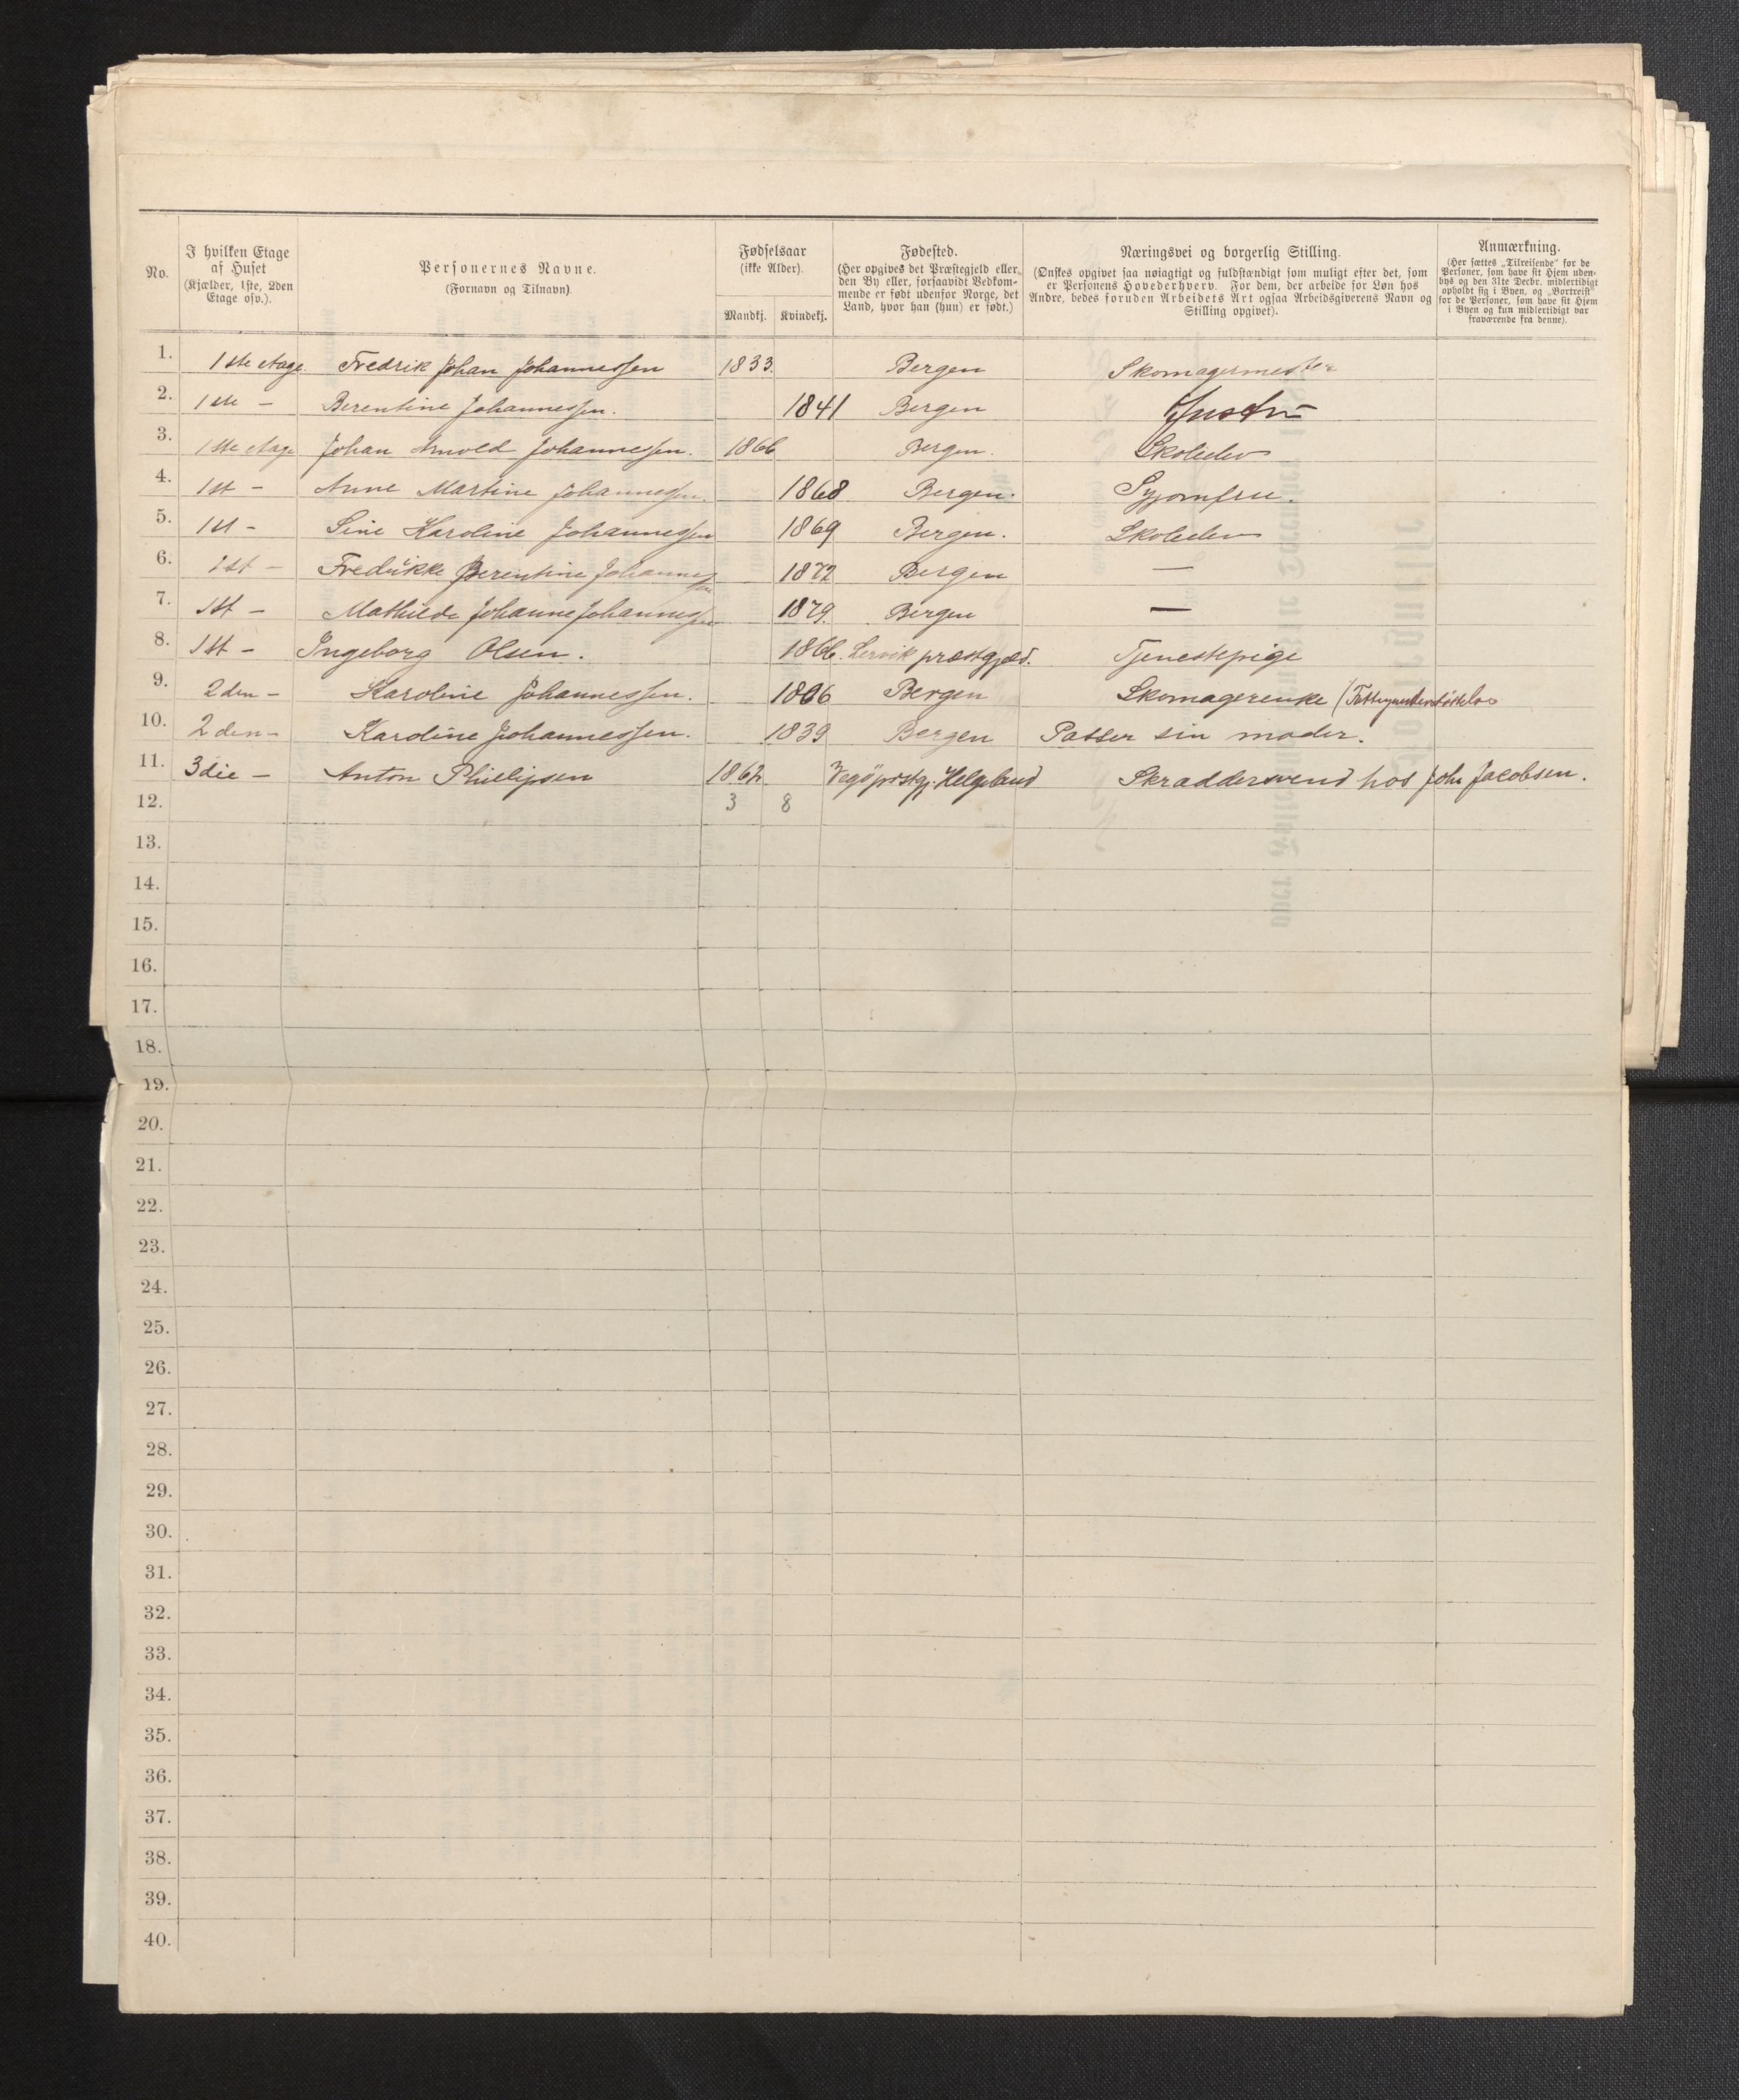 No.
I hvilken Etage
af Huset
(Kjælder, 1ste, 2den
Etage osv.).
Personernes Navne.
(Fornavn og Tilnavn).
Fødselsaar
(ikke Alder).
Mandkj. Kvindekj.
Fødested.
(Her opgives det Præstegjeld eller
den By eller, forsaavidt Vedkom-
mende er født udenfor Norge, det
Land, hvor han (hun) er født.)
Næringsvei og borgerlig Stilling.
(Ønskes opgivet saa nøiagtigt og fuldstændigt som muligt efter det, som
er Personens Hovederhverv. For dem, der arbeide for Løn hos
Andre, bedes foruden Arbeidets Art ogsaa Arbeidsgiverens Navn og
Stilling opgivet).
Anmærkning.
(Her sættes „Tilreisende" for de
Personer, som have sit Hjem uden-
bys og den 31te Decbr. midlertidigt
opholdt sig i Byen, og „Bortreist"
for de Personer, som have sit Hjem
i Byen og kun midlertidigt var
fraværende fra denne).
1. 1ste etage Fredrik Johan Johannessen 1833. Bergen Skomagermester
2. 1ste – Berentine Johannessen. 1841 Bergen Hustru
3. 1ste etage Johan Arnold Johannessen. 1866 Bergen. Skoleelev
4. 1st – Anne Martine Johannessen. 1868 Bergen. Syjomfru.
5. 1st – Sine Karoline Johannessen 1869 Bergen. Skoleelev
6. 1st – Fredrikke Berentine Johannessen 1872 Bergen —
7. 1st – Mathilde Johanne Johannessen 1879. Bergen —
8. 1st – Ingeborg Olsen. 1866. Lervik præstgjæld. Tjenestepige
9. 2den – Karoline Johannessen. 1806 Bergen Skomagerenke (Fattigunderstøttelse
10. 2den – Karoline Johannessen. 1839 Bergen Passer sin moder.
11. 3die – Anton Phillipsen 1862 Vegö prstgj. Helgeland Skraddersvend hos Johs Jacobsen.
12. 3 8
13.
14.
15.
16.
17.
18.
19.
20.
21.
22.
23.
24.
25.
26.
27.
28.
29.
30.
31.
32.
33.
34.
35.
36.
37.
38.
39.
40.